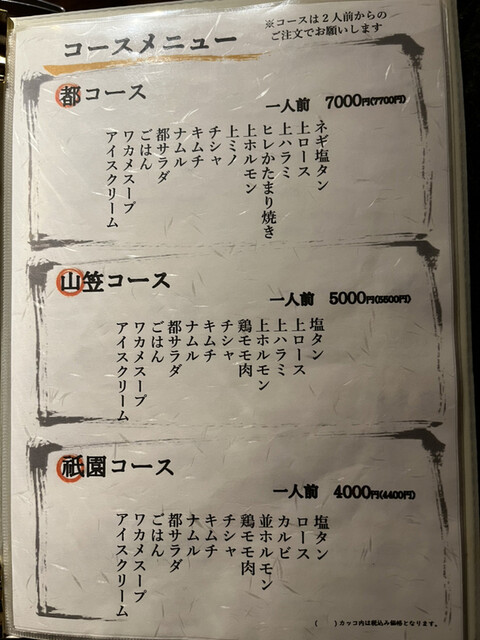 コースメニュー
※コースは２人前からの
ご注文でお願いします
都コース
一人前 7000円(7700円)
ネギ塩タン
上ロース
上ハラミ
ヒレかたまり焼き
上ホルモン
上ミノ
チシャ
キムチ
ナムル
都サラダ
ごはん
ワカメスープ
アイスクリーム
山笠コース
一人前 5000円(5500円)
塩タン
上ロース
上ハラミ
上ホルモン
鶏モモ肉
チシャ
キムチ
ナムル
都サラダ
ごはん
ワカメスープ
アイスクリーム
祇園コース
一人前 4000円(4400円)
塩タン
ロース
カルビ
並ホルモン
鶏モモ肉
チシャ
キムチ
ナムル
都サラダ
ごはん
ワカメスープ
アイスクリーム
(　　)カッコ内は税込み価格となります。